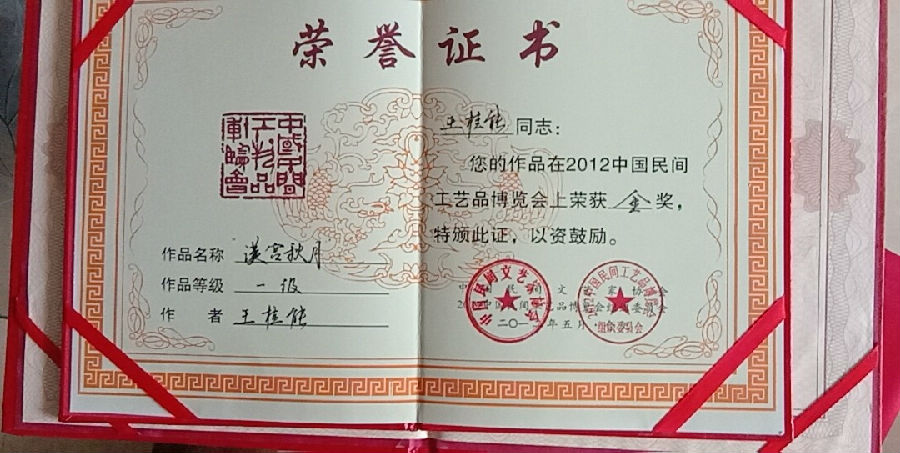 荣誉证书
中國民間
工艺品
博覽會
作品名称 漢宫秋月
作品等级 一级
作者 王桂能
王桂能同志：
您的作品在2012中国民间
工艺品博览会上荣获金奖，
特颁此证，以资鼓励。
中国民间文艺家协会
2012中国民间工艺品博览会组织委员会
二〇一二年五月
中国民间文艺家协会
组织委员会